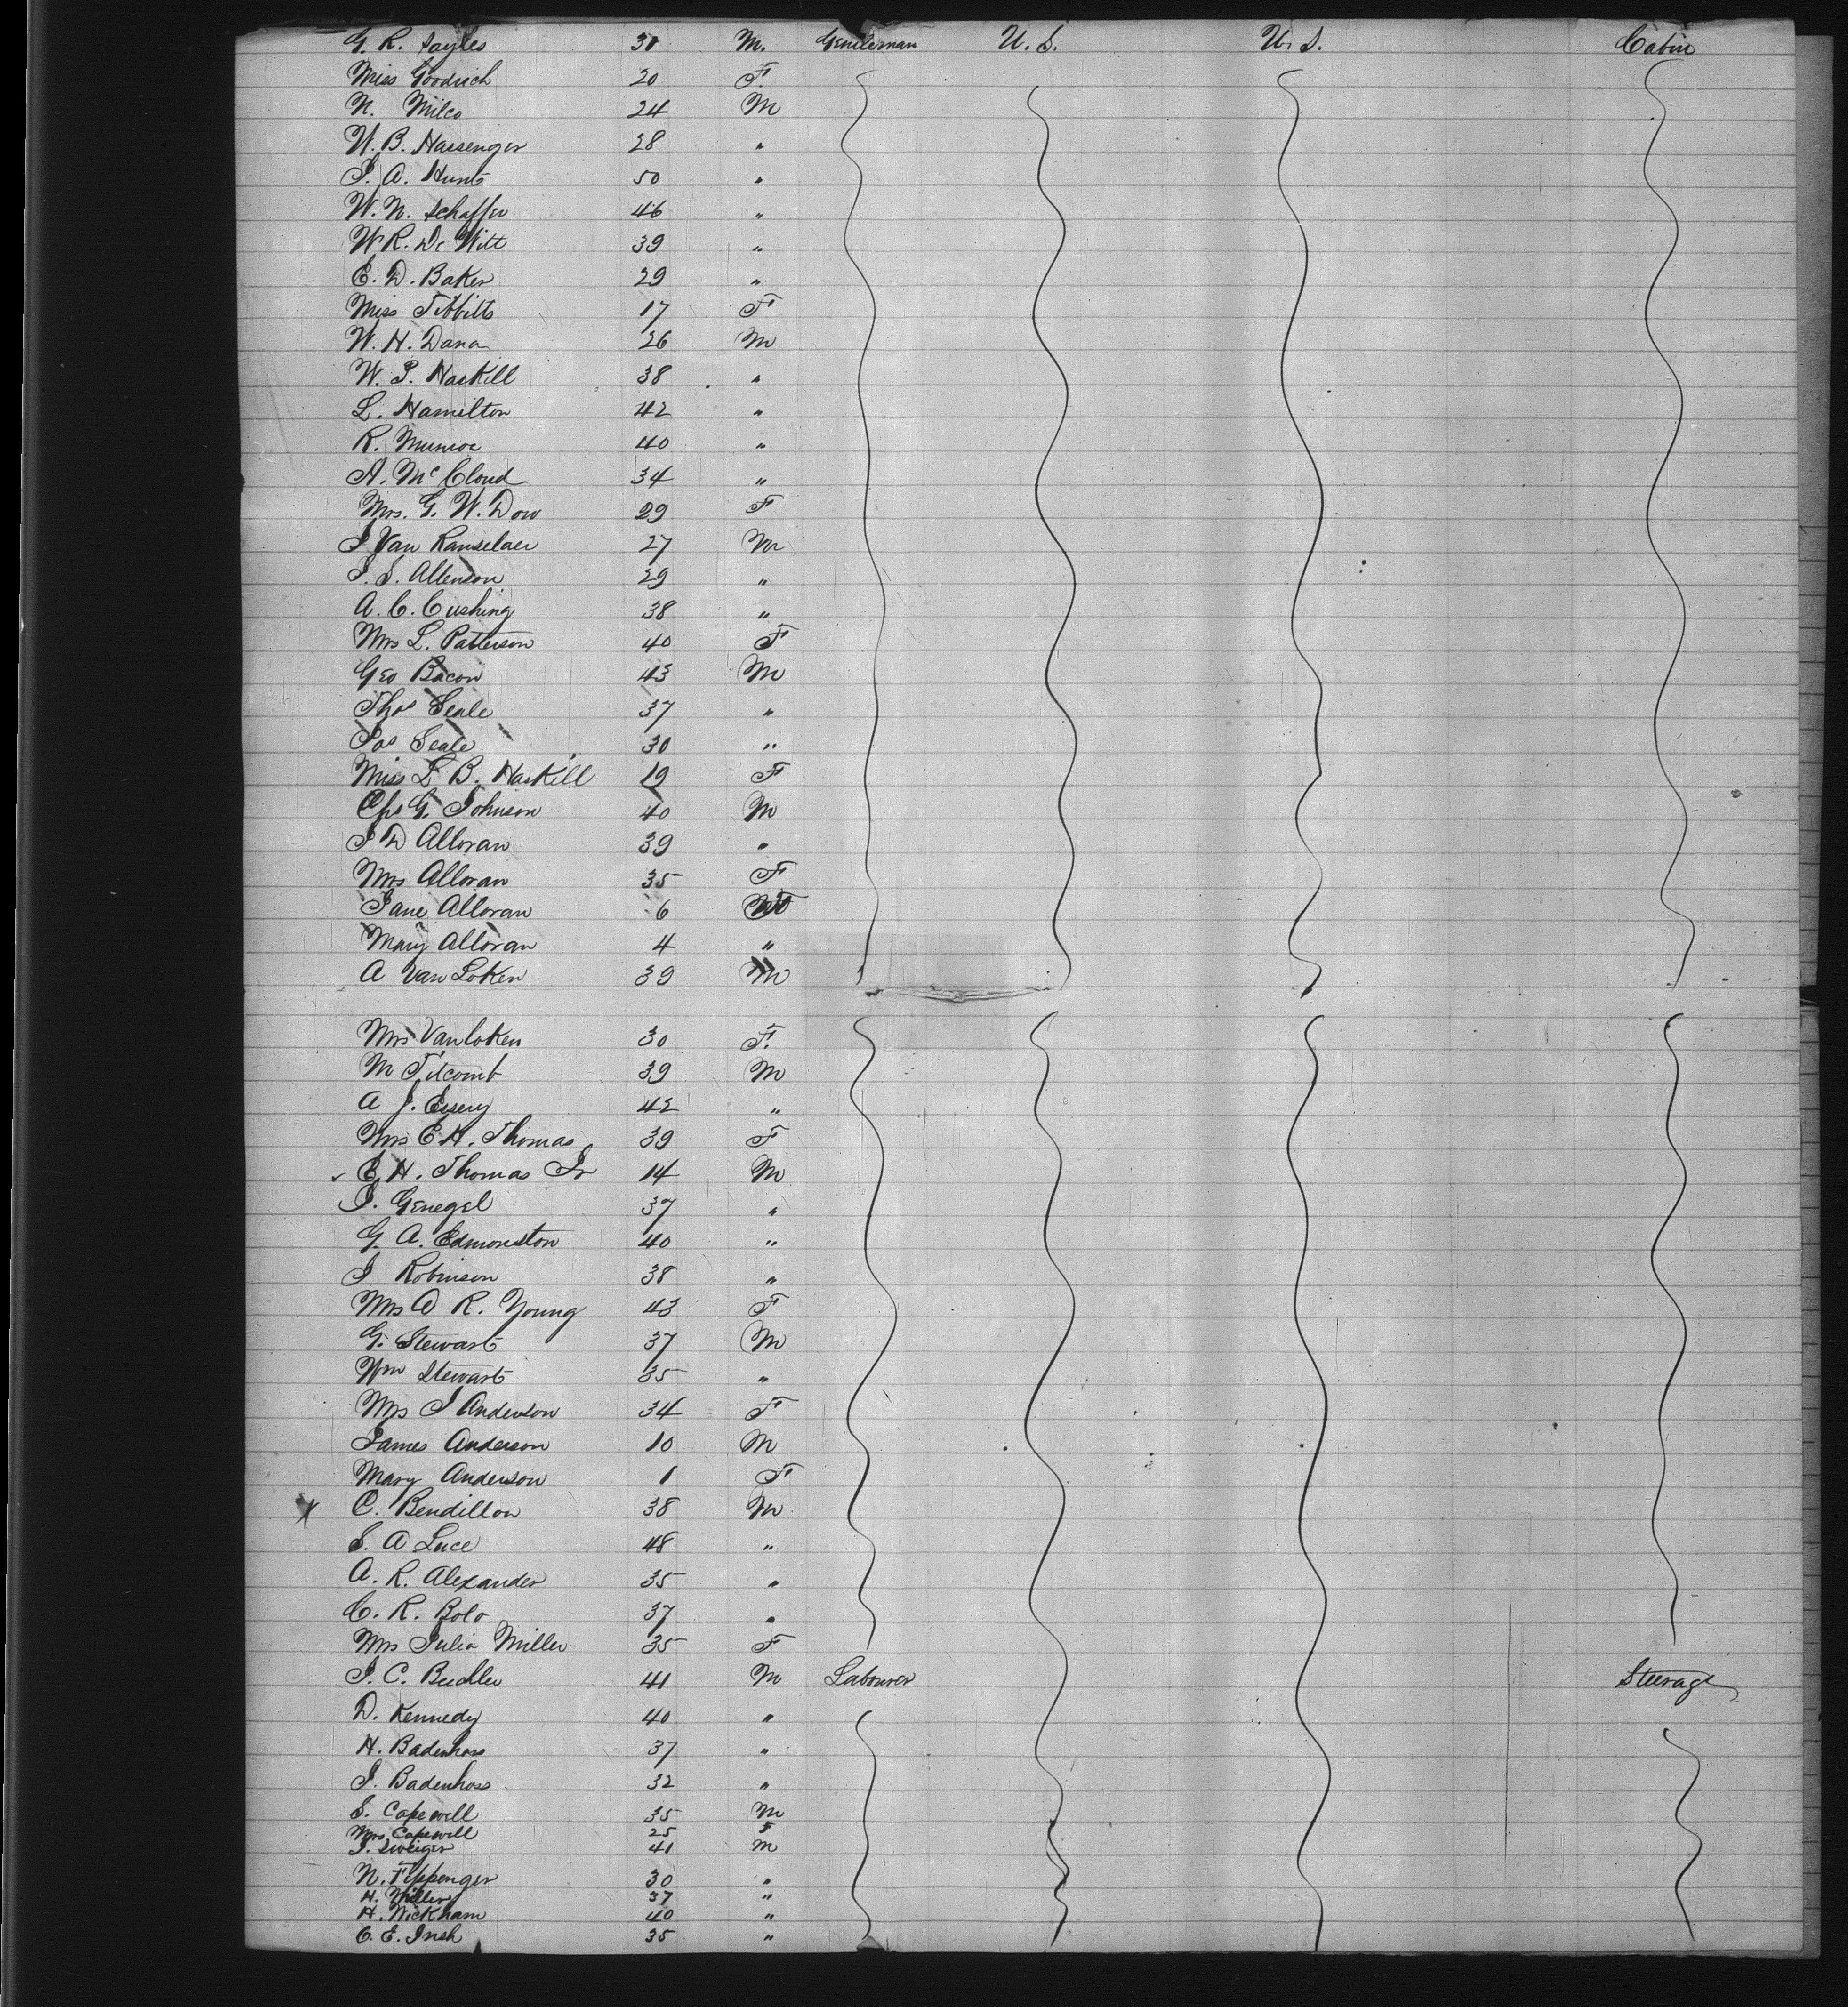 G. R. Sayles 31 M. Gentleman U. S. U. S. Cabin
Miss Goodrich 20 F.
N. Milco 24 M
W. B. Hassenger 28 "
J. A. Hunt 50 "
W. N. Schaffer 46 "
W R. De Witt 39 "
E. D. Baker 29 "
Miss Tibbitts 17 F
W. H. Dana 26 M
W. P. Haskill 38 "
L. Hamilton 42 "
R. Munroe 40 "
A. McCloud 34 "
Mrs. G. W. Dow 29 F
J Van Ranselaer 27 M
J. S. Allenson 29 "
A. C. Cushing 38 "
Mrs L. Patterson 40 F
Geo Bacon 43 M
Thos Seale 37 "
Jas Seale 30 "
Miss L B. Haskill 19 F
Chs G. Johnson 40 M
J D Alloran 39 "
Mrs Alloran 35 F
Jane Alloran 6 F
Mary Alloran 4 "
A Van Loken 39 M
Mrs Vanloken 30 F.
M Titcomb 39 M
A J. Essery 42 "
Mrs E H. Thomas 39 F
E. H. Thomas Jr 14 M
J. Genegel 37 "
G. A. Edmonston 40 "
J Robinson 38 "
Mrs A R. Young 43 F
G. Stewart 37 M
Wm Stewart 35 "
Mrs J Anderson 34 F
James Anderson 10 M
Mary Anderson 1 F
C. Bendillon 38 M
S. A Luce 48 "
A. R. Alexander 35 "
C. R. Bolo 37 "
Mrs Julia Miller 35 F
J. C. Buchler 41 M Labourer Steerage
D. Kennedy 40 "
H. Badenhoss 37 "
J. Badenhoss 32 "
S. Capewell 35 M
Mrs. Capewell 25 F
J. Sweiger 41 M
N. Fippenger 30 "
H. Miller 37 "
H. Wickham 40 "
C. E. Insh 35 "